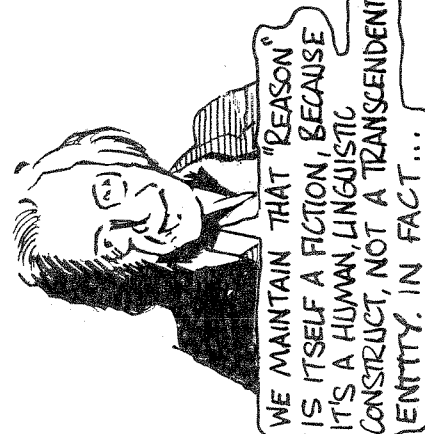 WE MAINTAIN THAT "REASON"
IS ITSELF A FICTION, BECAUSE
IT'S A HUMAN, LINGUISTIC
CONSTRUCT, NOT A TRANSCENDENT
ENTITY. IN FACT...